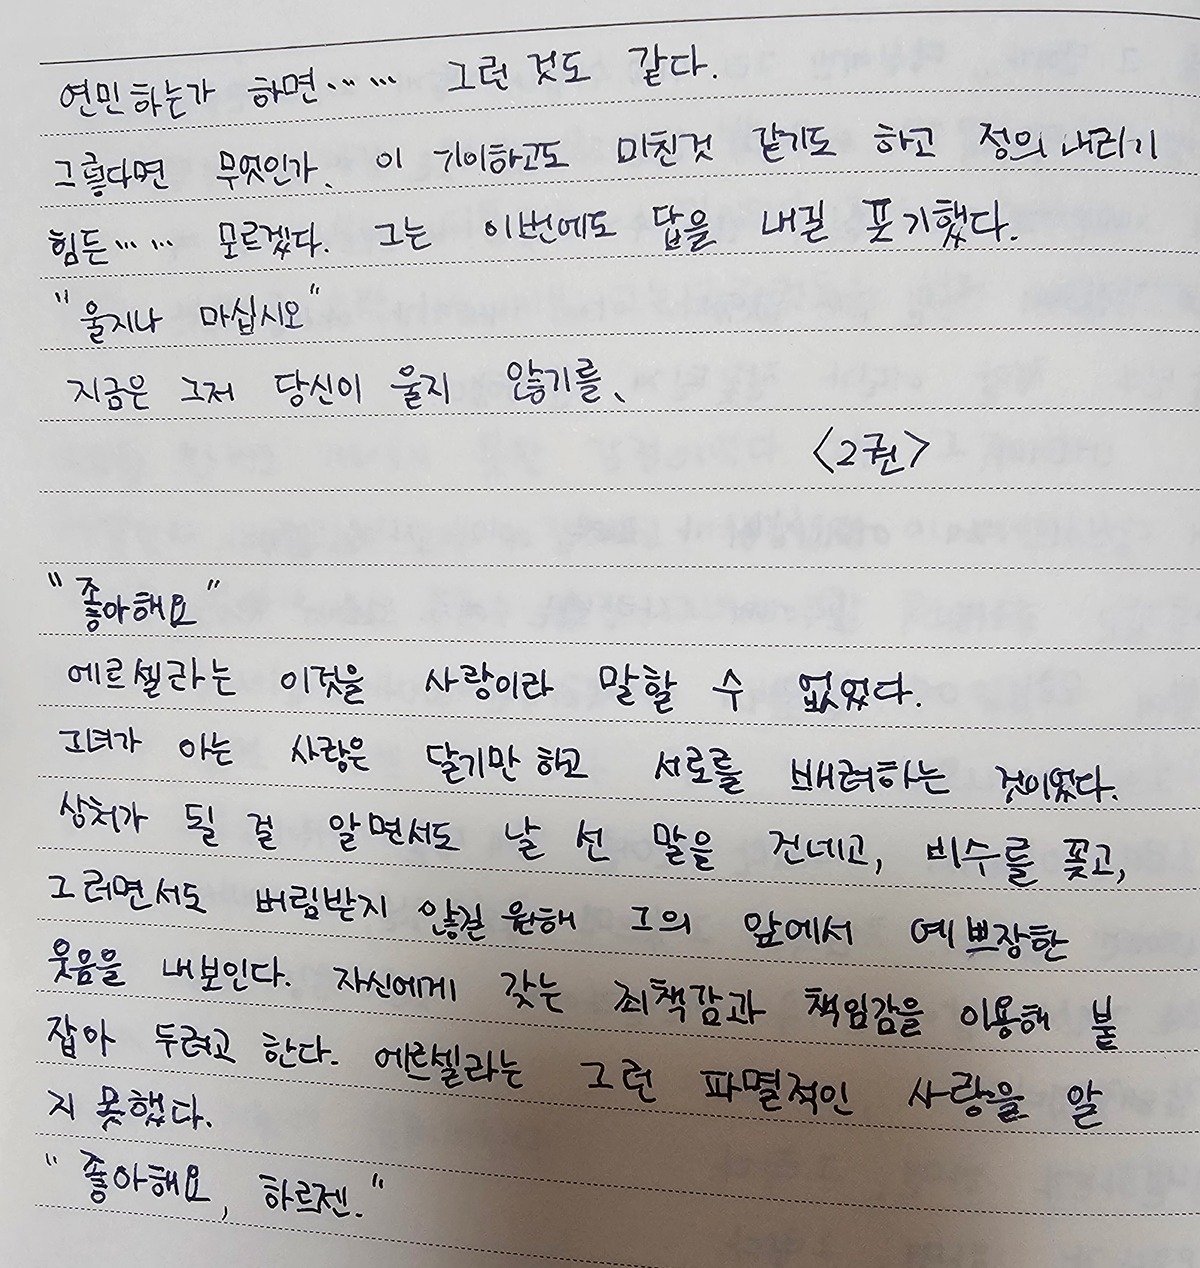 연민하는가 하면…… 그런 것도 같다.
그렇다면 무엇인가. 이 기이하고도 미친것 같기도 하고 정의 내리기
힘든…… 모르겠다. 그는 이번에도 답을 내길 포기했다.
"울지나 마십시오"
지금은 그저 당신이 울지 않기를.
<2권>
"좋아해요"
에르셀라는 이것을 사랑이라 말할 수 없었다.
그녀가 아는 사랑은 달기만 하고 서로를 배려하는 것이었다.
상처가 될 걸 알면서도 날 선 말을 건네고, 비수를 꽂고,
그러면서도 버림받지 않길 원해 그의 앞에서 예쁘장한
웃음을 내보인다. 자신에게 갖는 죄책감과 책임감을 이용해 붙
잡아 두려고 한다. 에르셀라는 그런 파멸적인 사랑을 알
지 못했다.
"좋아해요, 하르젠."